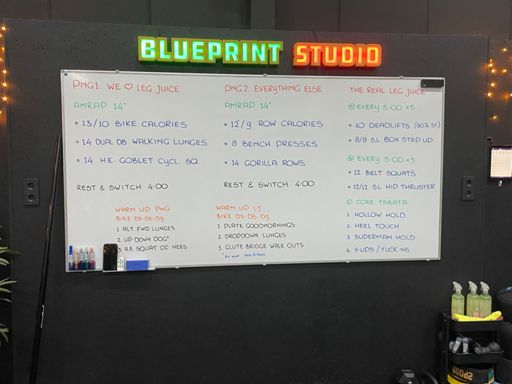 BLUEPRINT STUDIO
PNG1. WE ♡ LEG JUICE
AMRAP 14'
• 13/10 BIKE CALORIES
• 14 DUAL DB WALKING LUNGES
• 14 H.E. GOBLET CYCL. SQ.
REST & SWITCH 4:00
WARM UP PNG
BIKE D3-D6-D9
1. ALT FWD LUNGES
2. UP DOWN DOG
3. H.E SQUAT
PNG2. EVERYTHING ELSE
AMRAP 14'
• 12/9 ROW CALORIES
• 8 BENCH PRESSES
• 14 GORILLA ROWS
REST & SWITCH 4:00
WARM UP LJ
BIKE D3-D6-D9
1. PLATE GOODMORNINGS
2. DROPDOWN LUNGES
3. GLUTE BRIDGE WALK OUTS
THE REAL LEG JUICE
EVERY 5:00 x5
• 10 DEADLIFTS
• 8/8 SL BOX STEP UP
EVERY 5:00 x3
• 12 BELT SQUATS
• 12/12 SL HIP THRUSTER
CORE TABATA
1. HOLLOW HOLD
2. HEEL TOUCH
3. SUPERMAN HOLD
4. V-UPS / TUCK-INS